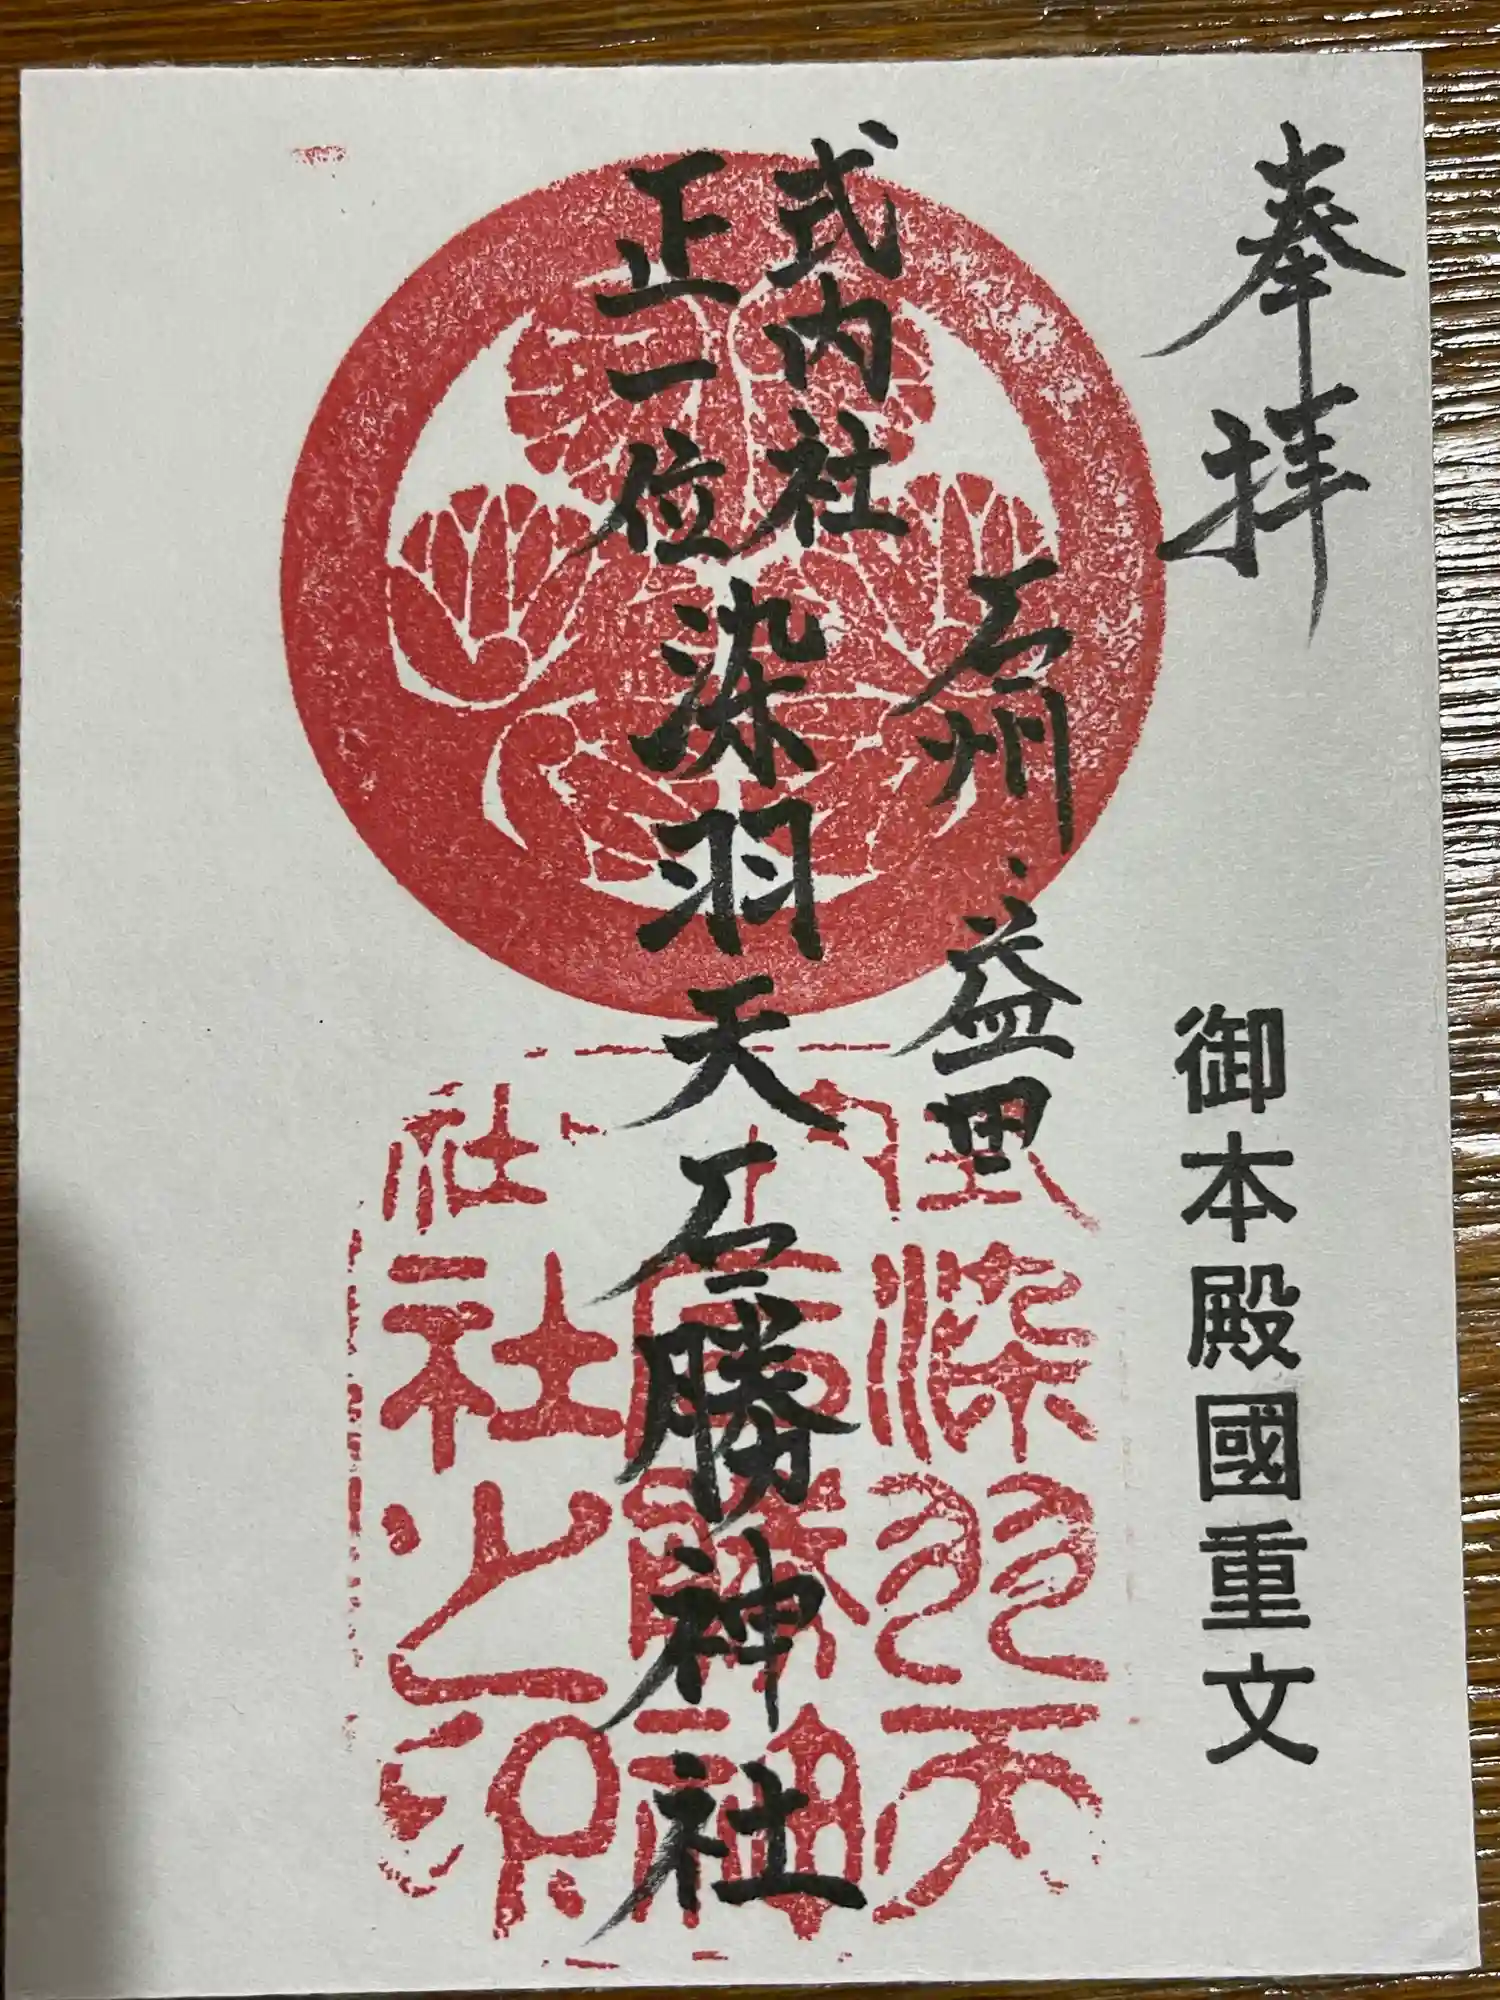 奉拝
御本殿國重文
石州・益田
式内社
正一位
染羽天石勝神社
式内社
染羽天
石勝神
社社之印